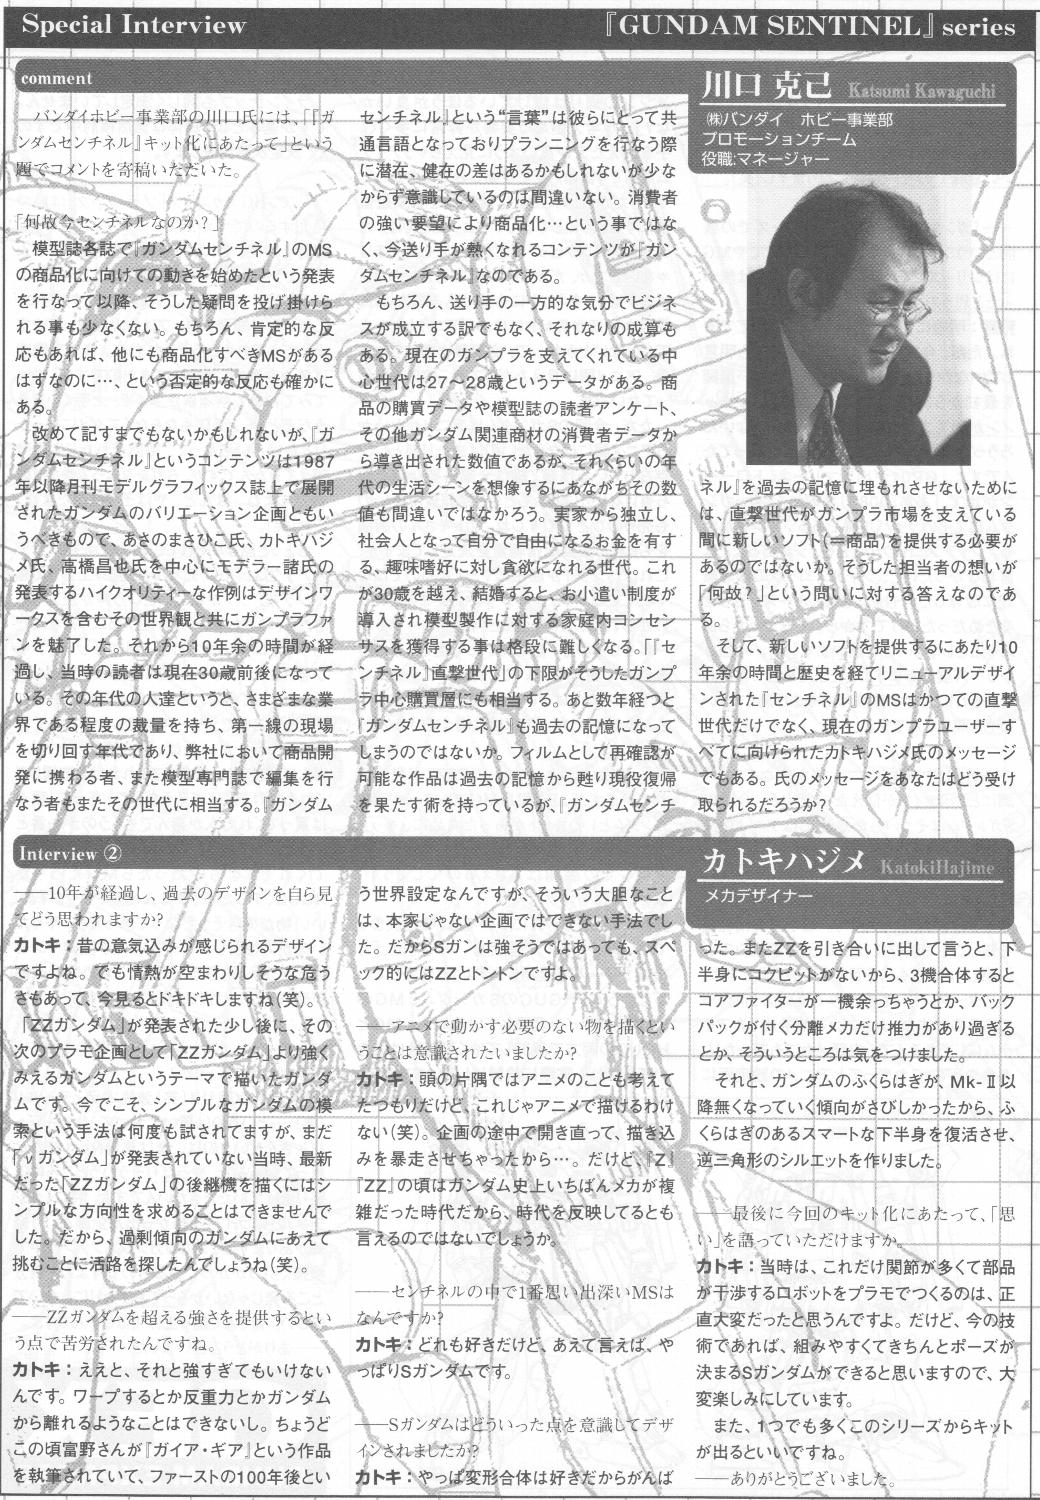 Special Interview
『GUNDAM SENTINEL』series
comment
川口 克己 Katsumi Kawaguchi
㈱バンダイ　ホビー事業部
プロモーションチーム
役職:マネージャー
バンダイホビー事業部の川口氏には、「『ガ
ンダムセンチネル』キット化にあたって」という
題でコメントを寄稿いただいた。
「何故今センチネルなのか?」
模型誌各誌で『ガンダムセンチネル』のMS
の商品化に向けての動きを始めたという発表
を行なって以降、そうした疑問を投げ掛けら
れる事も少なくない。もちろん、肯定的な反
応もあれば、他にも商品化すべきMSがある
はずなのに…、という否定的な反応も確かに
ある。
改めて記すまでもないかもしれないが、『ガ
ンダムセンチネル』というコンテンツは1987
年以降月刊モデルグラフィックス誌上で展開
されたガンダムのバリエーション企画ともい
うべきもので、あさのまさひこ氏、カトキハジ
メ氏、高橋昌也氏を中心にモデラー諸氏の
発表するハイクオリティーな作例はデザインワ
ークスを含むその世界観と共にガンプラファ
ンを魅了した。それから10年余の時間が経
過し、当時の読者は現在30歳前後になって
いる。その年代の人達というと、さまざまな業
界である程度の裁量を持ち、第一線の現場
を切り回す年代であり、弊社において商品開
発に携わる者、また模型専門誌で編集を行
なう者もまたその世代に相当する。『ガンダム
センチネル』という“言葉”は彼らにとって共
通言語となっておりプランニングを行なう際
に潜在、健在の差はあるかもしれないが少な
からず意識しているのは間違いない。消費者
の強い要望により商品化…という事ではな
く、今送り手が熱くなれるコンテンツが『ガン
ダムセンチネル』なのである。
もちろん、送り手の一方的な気分でビジネ
スが成立する訳でもなく、それなりの成算も
ある。現在のガンプラを支えてくれている中
心世代は27〜28歳というデータがある。商
品の購買データや模型誌の読者アンケート、
その他ガンダム関連商材の消費者データか
ら導き出された数値であるが、それくらいの年
代の生活シーンを想像するにあながちその数
値も間違いではなかろう。実家から独立し、
社会人となって自分で自由になるお金を有す
る、趣味嗜好に対し貪欲になれる世代。これ
が30歳を越え、結婚すると、お小遣い制度が
導入され模型製作に対する家庭内コンセン
サスを獲得する事は格段に難しくなる。『『セ
ンチネル』直撃世代」の下限がそうしたガンプ
ラ中心購買層にも相当する。あと数年経つと
『ガンダムセンチネル』も過去の記憶になって
しまうのではないか。フィルムとして再確認が
可能な作品は過去の記憶から甦り現役復帰
を果たす術を持っているが、『ガンダムセンチ
ネル』を過去の記憶に埋もれさせないために
は、直撃世代がガンプラ市場を支えている
間に新しいソフト(=商品)を提供する必要が
あるのではないか。そうした担当者の想いが
「何故?」という問いに対する答えなのであ
る。
そして、新しいソフトを提供するにあたり10
年余の時間と歴史を経てリニューアルデザイ
ンされた『センチネル』のMSはかつての直撃
世代だけでなく、現在のガンプラユーザーす
べてに向けられたカトキハジメ氏のメッセージ
でもある。氏のメッセージをあなたはどう受け
取られるだろうか?
Interview ②
カトキハジメ KatokiHajime
メカデザイナー
――10年が経過し、過去のデザインを自ら見
てどう思われますか?
カトキ：昔の意気込みが感じられるデザイン
ですよね。でも情熱が空まわりしそうな危う
さもあって、今見るとドキドキしますね(笑)。
「ZZガンダム」が発表された少し後に、その
次のプラモ企画として「ZZガンダム」より強く
みえるガンダムというテーマで描いたガンダ
ムです。今でこそ、シンプルなガンダムの模
索という手法は何度も試されてますが、まだ
「νガンダム」が発表されていない当時、最新
だった「ZZガンダム」の後継機を描くにはシ
ンプルな方向性を求めることはできませんで
した。だから、過剰傾向のガンダムにあえて
挑むことに活路を探したんでしょうね(笑)。
――ZZガンダムを超える強さを提供するとい
う点で苦労されたんですね。
カトキ：ええと、それと強すぎてもいけない
んです。ワープするとか反重力とかガンダム
から離れるようなことはできないし。ちょうど
この頃富野さんが『ガイア・ギア』という作品
を執筆されていて、ファーストの100年後とい
う世界設定なんですが、そういう大胆なこと
は、本家じゃない企画ではできない手法でし
た。だからSガンは強そうではあっても、スペ
ック的にはZZとトントンですよ。
――アニメで動かす必要のない物を描くとい
うことは意識されたいましたか?
カトキ：頭の片隅ではアニメのことも考えて
たつもりだけど、これじゃアニメで描けるわけ
ない(笑)。企画の途中で開き直って、描き込
みを暴走させちゃったから…。だけど、『Z』
『ZZ』の頃はガンダム史上いちばんメカが複
雑だった時代だから、時代を反映してるとも
言えるのではないでしょうか。
――センチネルの中で1番思い出深いMSは
なんですか?
カトキ：どれも好きだけど、あえて言えば、や
っぱりSガンダムです。
――Sガンダムはどういった点を意識してデザ
インされましたか?
カトキ：やっぱ変形合体は好きだからがんば
った。またZZを引き合いに出して言うと、下
半身にコクピットがないから、3機合体すると
コアファイターが一機余っちゃうとか、バック
パックが付く分離メカだけ推力があり過ぎる
とか、そういうところは気をつけました。
それと、ガンダムのふくらはぎが、Mk-Ⅱ以
降無くなっていく傾向がさびしかったから、ふ
くらはぎのあるスマートな下半身を復活させ、
逆三角形のシルエットを作りました。
――最後に今回のキット化にあたって、「思
い」を語っていただけますか。
カトキ：当時は、これだけ関節が多くて部品
が干渉するロボットをプラモでつくるのは、正
直大変だったと思うんですよ。だけど、今の技
術であれば、組みやすくてきちんとポーズが
決まるSガンダムができると思いますので、大
変楽しみにしています。
また、1つでも多くこのシリーズからキット
が出るといいですね。
――ありがとうございました。